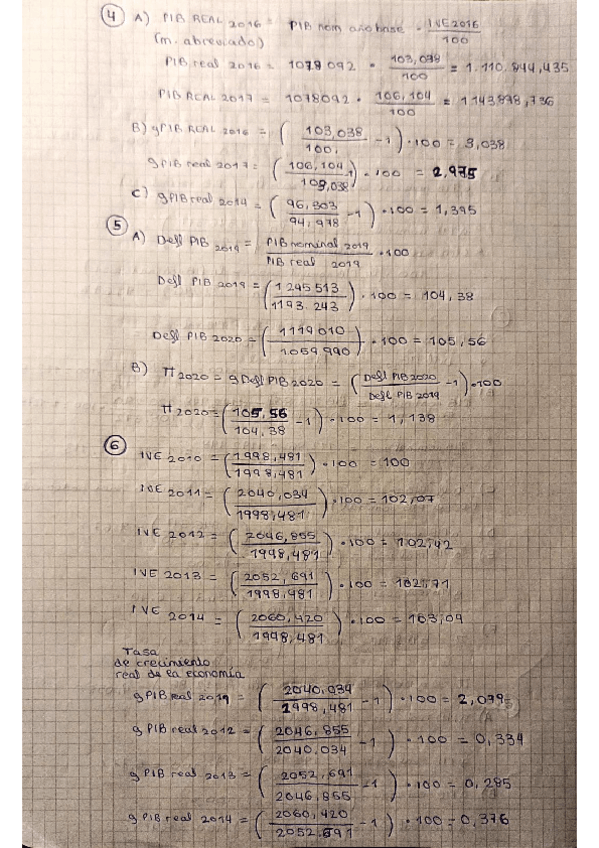 ④ A) PIB REAL 2016 = PIB nom año base · IVE2016 / 100
(m. abreviado)
PIB real 2016 = 1078092 · 103,038 / 100 = 1.110.844,435
PIB REAL 2017 = 1078092 · 106,104 / 100 = 1143898,736
B) gPIB REAL 2016 = (103,038 / 100, - 1) · 100 = 3,038
gPIB real 2017 = (106,104 / 103,038 - 1) · 100 = 2,975
C) gPIB real 2014 = (96,303 / 94,978 - 1) · 100 = 1,395
⑤ A) Defl PIB 2019 = PIB nominal 2019 / PIB real 2019 · 100
Defl PIB 2019 = (1245513 / 1193.243) · 100 = 104,38
Defl PIB 2020 = (1119010 / 1059990) · 100 = 105,56
B) π 2020 = g Defl PIB 2020 = (Defl PIB 2020 / Defl PIB 2019 - 1) · 100
π 2020 = (105,56 / 104,38 - 1) · 100 = 1,138
⑥ IVE 2010 = (1998,481 / 1998,481) · 100 = 100
IVE 2011 = (2040,034 / 1998,481) · 100 = 102,07
IVE 2012 = (2046,855 / 1998,481) · 100 = 102,42
IVE 2013 = (2052,691 / 1998,481) · 100 = 102,71
IVE 2014 = (2060,420 / 1998,481) · 100 = 103,09
Tasa
de crecimiento
real de la economía
gPIB real 2011 = (2040,034 / 1998,481 - 1) · 100 = 2,079
gPIB real 2012 = (2046,855 / 2040.034 - 1) · 100 = 0,334
gPIB real 2013 = (2052,691 / 2046,855 - 1) · 100 = 0,285
gPIB real 2014 = (2060,420 / 2052.691 - 1) · 100 = 0,376